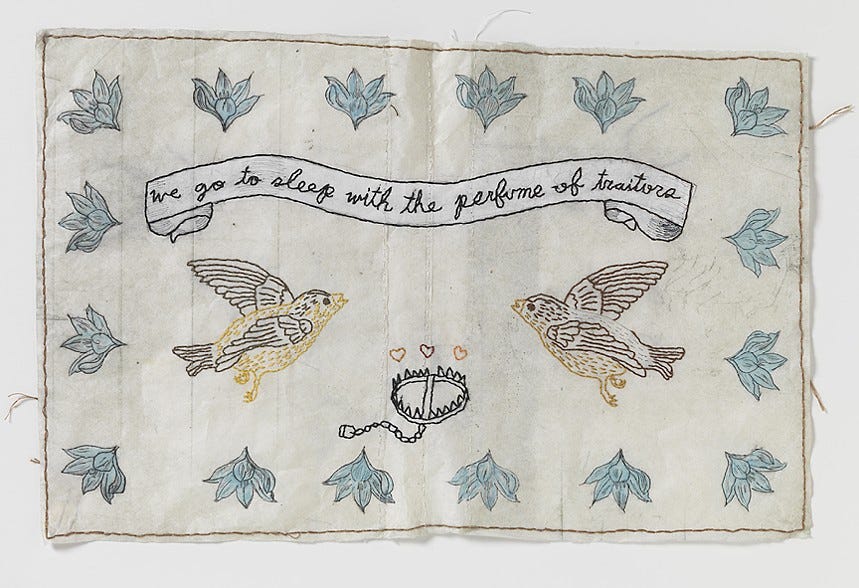 we go to sleep with the perfume of traitors